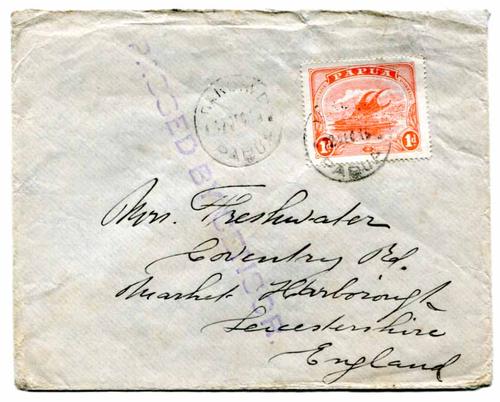 PAPUA
1d 1d
PAPUA
PAPUA
PASSED BY CENSOR.
Mrs. Freshwater
Coventry Rd.
Market Harborough
Leicestershire
England